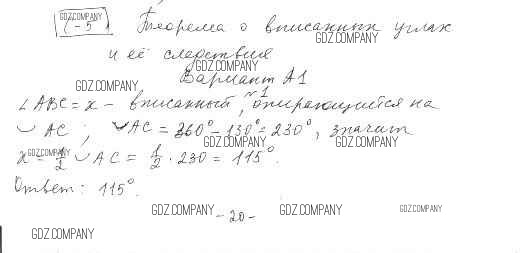 GDZ.COMPANY
С-5 Теорема о вписанных углах
GDZ.COMPANY
и её следствия
GDZ.COMPANY
Вариант А1
GDZ.COMPANY
№1
∠ABC = x - вписанный, опирающийся на
GDZ.COMPANY
◡ AC ; ◡AC = 360° - 130° = 230°, значит
GDZ.COMPANY GDZ.COMPANY
x = 1/2 ◡ AC = 1/2 · 230 = 115°.
GDZ.COMPANY
Ответ: 115°.
GDZ.COMPANY - 20 - GDZ.COMPANY GDZ.COMPANY
GDZ.COMPANY